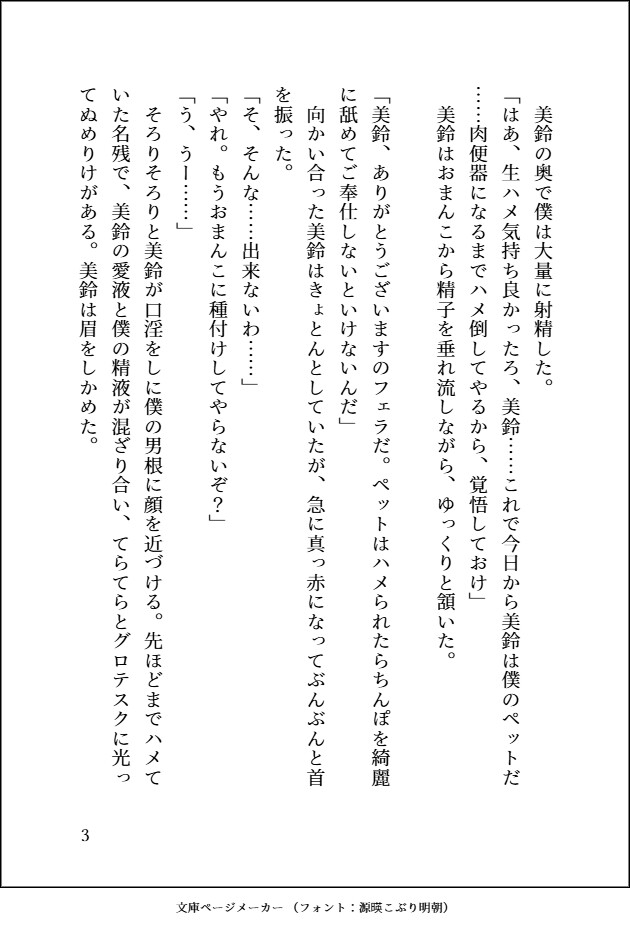 美鈴の奥で僕は大量に射精した。
「はあ、生ハメ気持ち良かったろ、美鈴……これで今日から美鈴は僕のペットだ
……肉便器になるまでハメ倒してやるから、覚悟しておけ」
美鈴はおまんこから精子を垂れ流しながら、ゆっくりと頷いた。
「美鈴、ありがとうございますのフェラだ。ペットはハメられたらちんぽを綺麗
に舐めてご奉仕しないといけないんだ」
向かい合った美鈴はきょとんとしていたが、急に真っ赤になってぶんぶんと首
を振った。
「そ、そんな……出来ないわ……」
「やれ。もうおまんこに種付けしてやらないぞ？」
「う、うー……」
そろりそろりと美鈴が口淫をしに僕の男根に顔を近づける。先ほどまでハメて
いた名残で、美鈴の愛液と僕の精液が混ざり合い、てらてらとグロテスクに光っ
てぬめりけがある。美鈴は眉をしかめた。
3
文庫ページメーカー（フォント：源暎こぶり明朝）